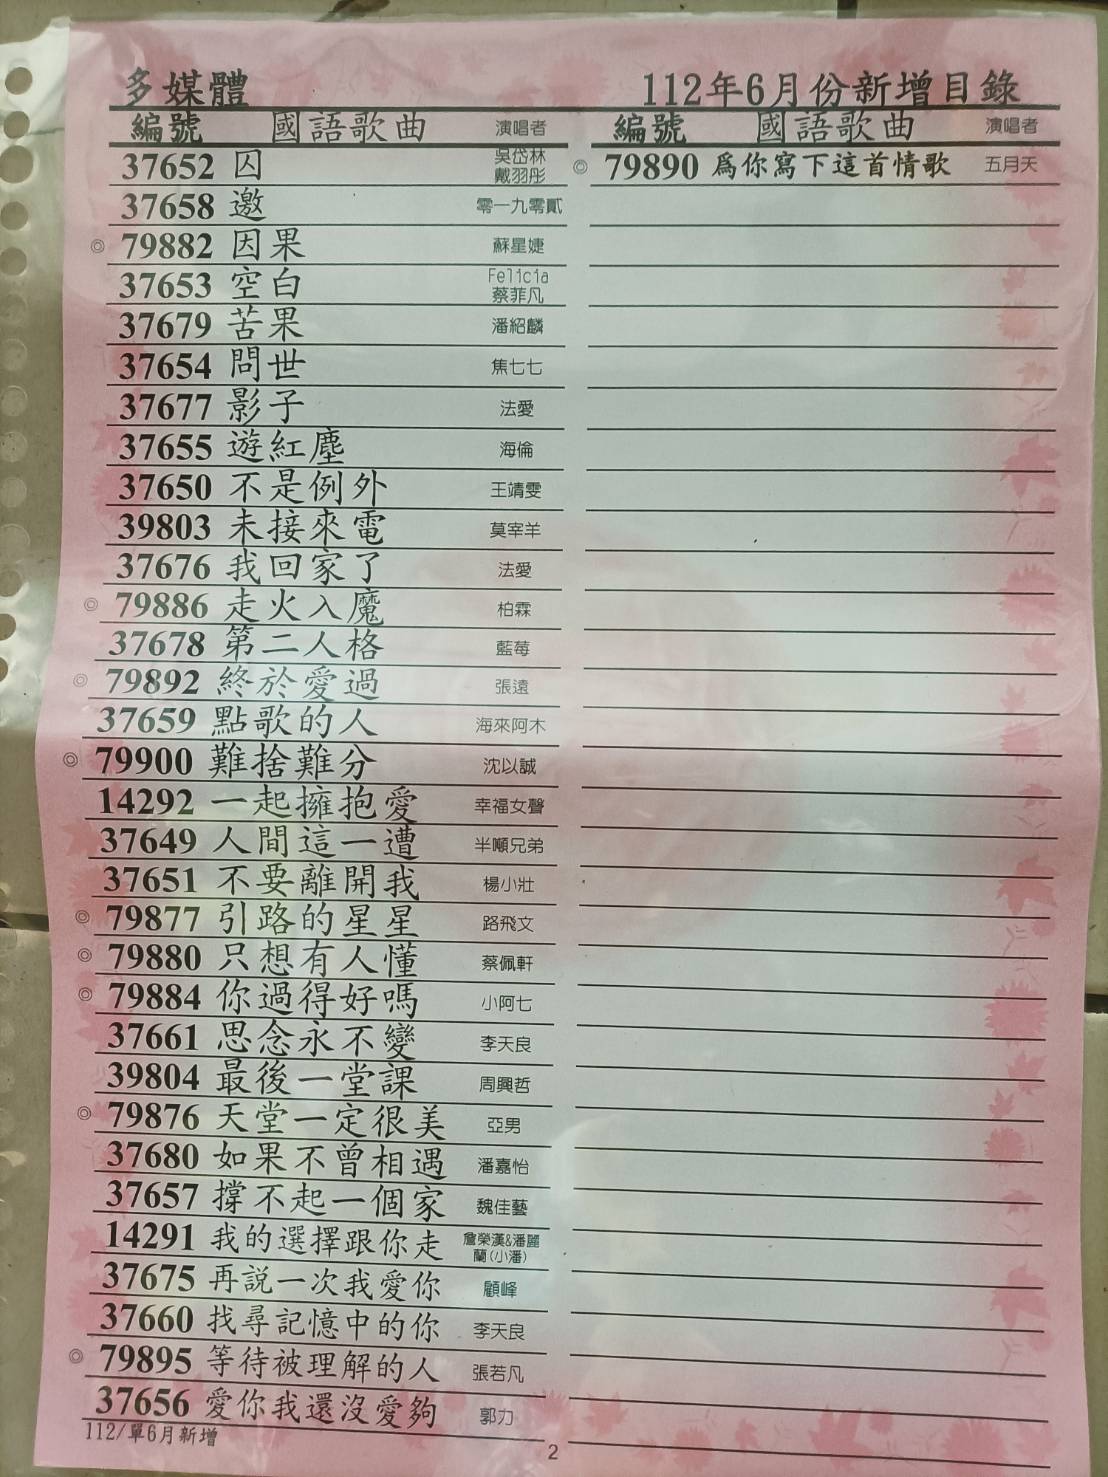 多媒體 112年6月份新增目錄
編號 國語歌曲 演唱者 編號 國語歌曲 演唱者
37652 囚 吳岱林 戴羽彤
◎ 79890 為你寫下這首情歌 五月天
37658 邀 零一九零貳
◎ 79882 因果 蘇星婕
37653 空白 Felicia 蔡菲凡
37679 苦果 潘紹麟
37654 問世 焦七七
37677 影子 法愛
37655 遊紅塵 海倫
37650 不是例外 王靖雯
39803 未接來電 莫宰羊
37676 我回家了 法愛
◎ 79886 走火入魔 柏霖
37678 第二人格 藍莓
◎ 79892 終於愛過 張遠
37659 點歌的人 海來阿木
◎ 79900 難捨難分 沈以誠
14292 一起擁抱愛 幸福女聲
37649 人間這一遭 半噸兄弟
37651 不要離開我 楊小壯
◎ 79877 引路的星星 路飛文
◎ 79880 只想有人懂 蔡佩軒
◎ 79884 你過得好嗎 小阿七
37661 思念永不變 李天良
39804 最後一堂課 周興哲
◎ 79876 天堂一定很美 亞男
37680 如果不曾相遇 潘嘉怡
37657 撐不起一個家 魏佳藝
14291 我的選擇跟你走 詹榮漢&潘麗蘭(小潘)
37675 再說一次我愛你 顧峰
37660 找尋記憶中的你 李天良
◎ 79895 等待被理解的人 張若凡
37656 愛你我還沒愛夠 郭力
112/單6月新增
2